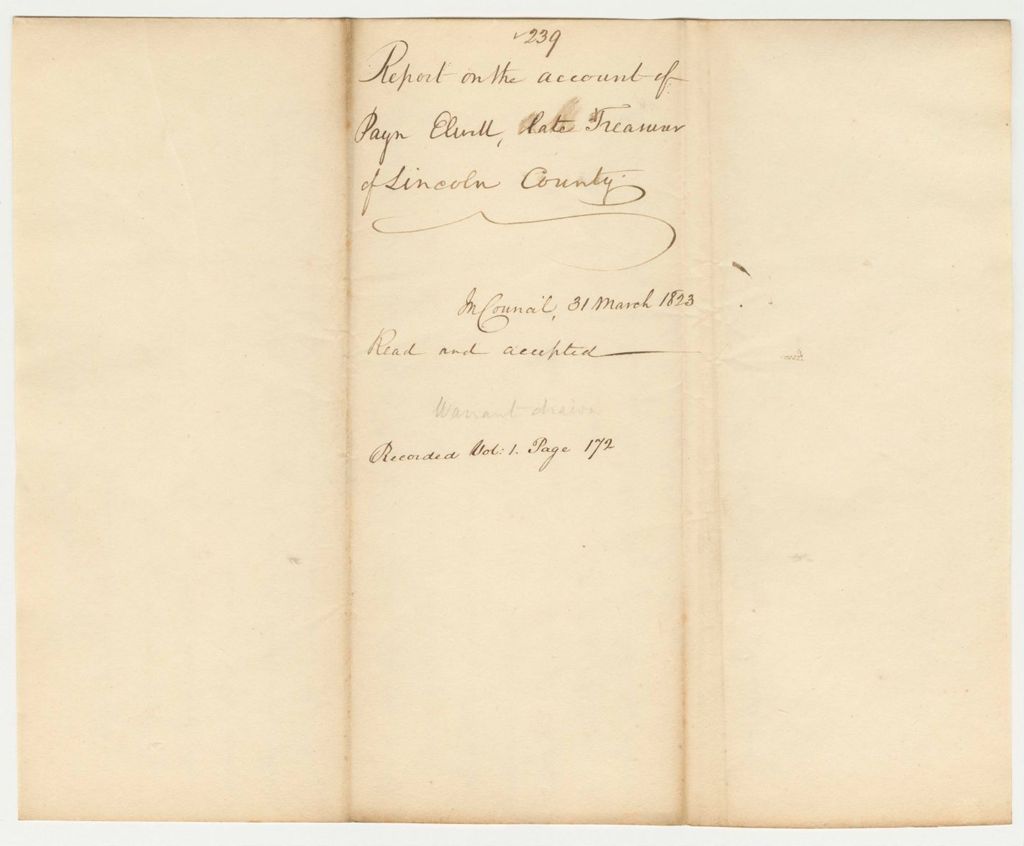 239
Report on the account of
Payn Elwell, late Treasurer
of Lincoln County.
In Council, 31 March 1823
Read and accepted
Warrant drawn
Recorded Vol: 1. Page 172